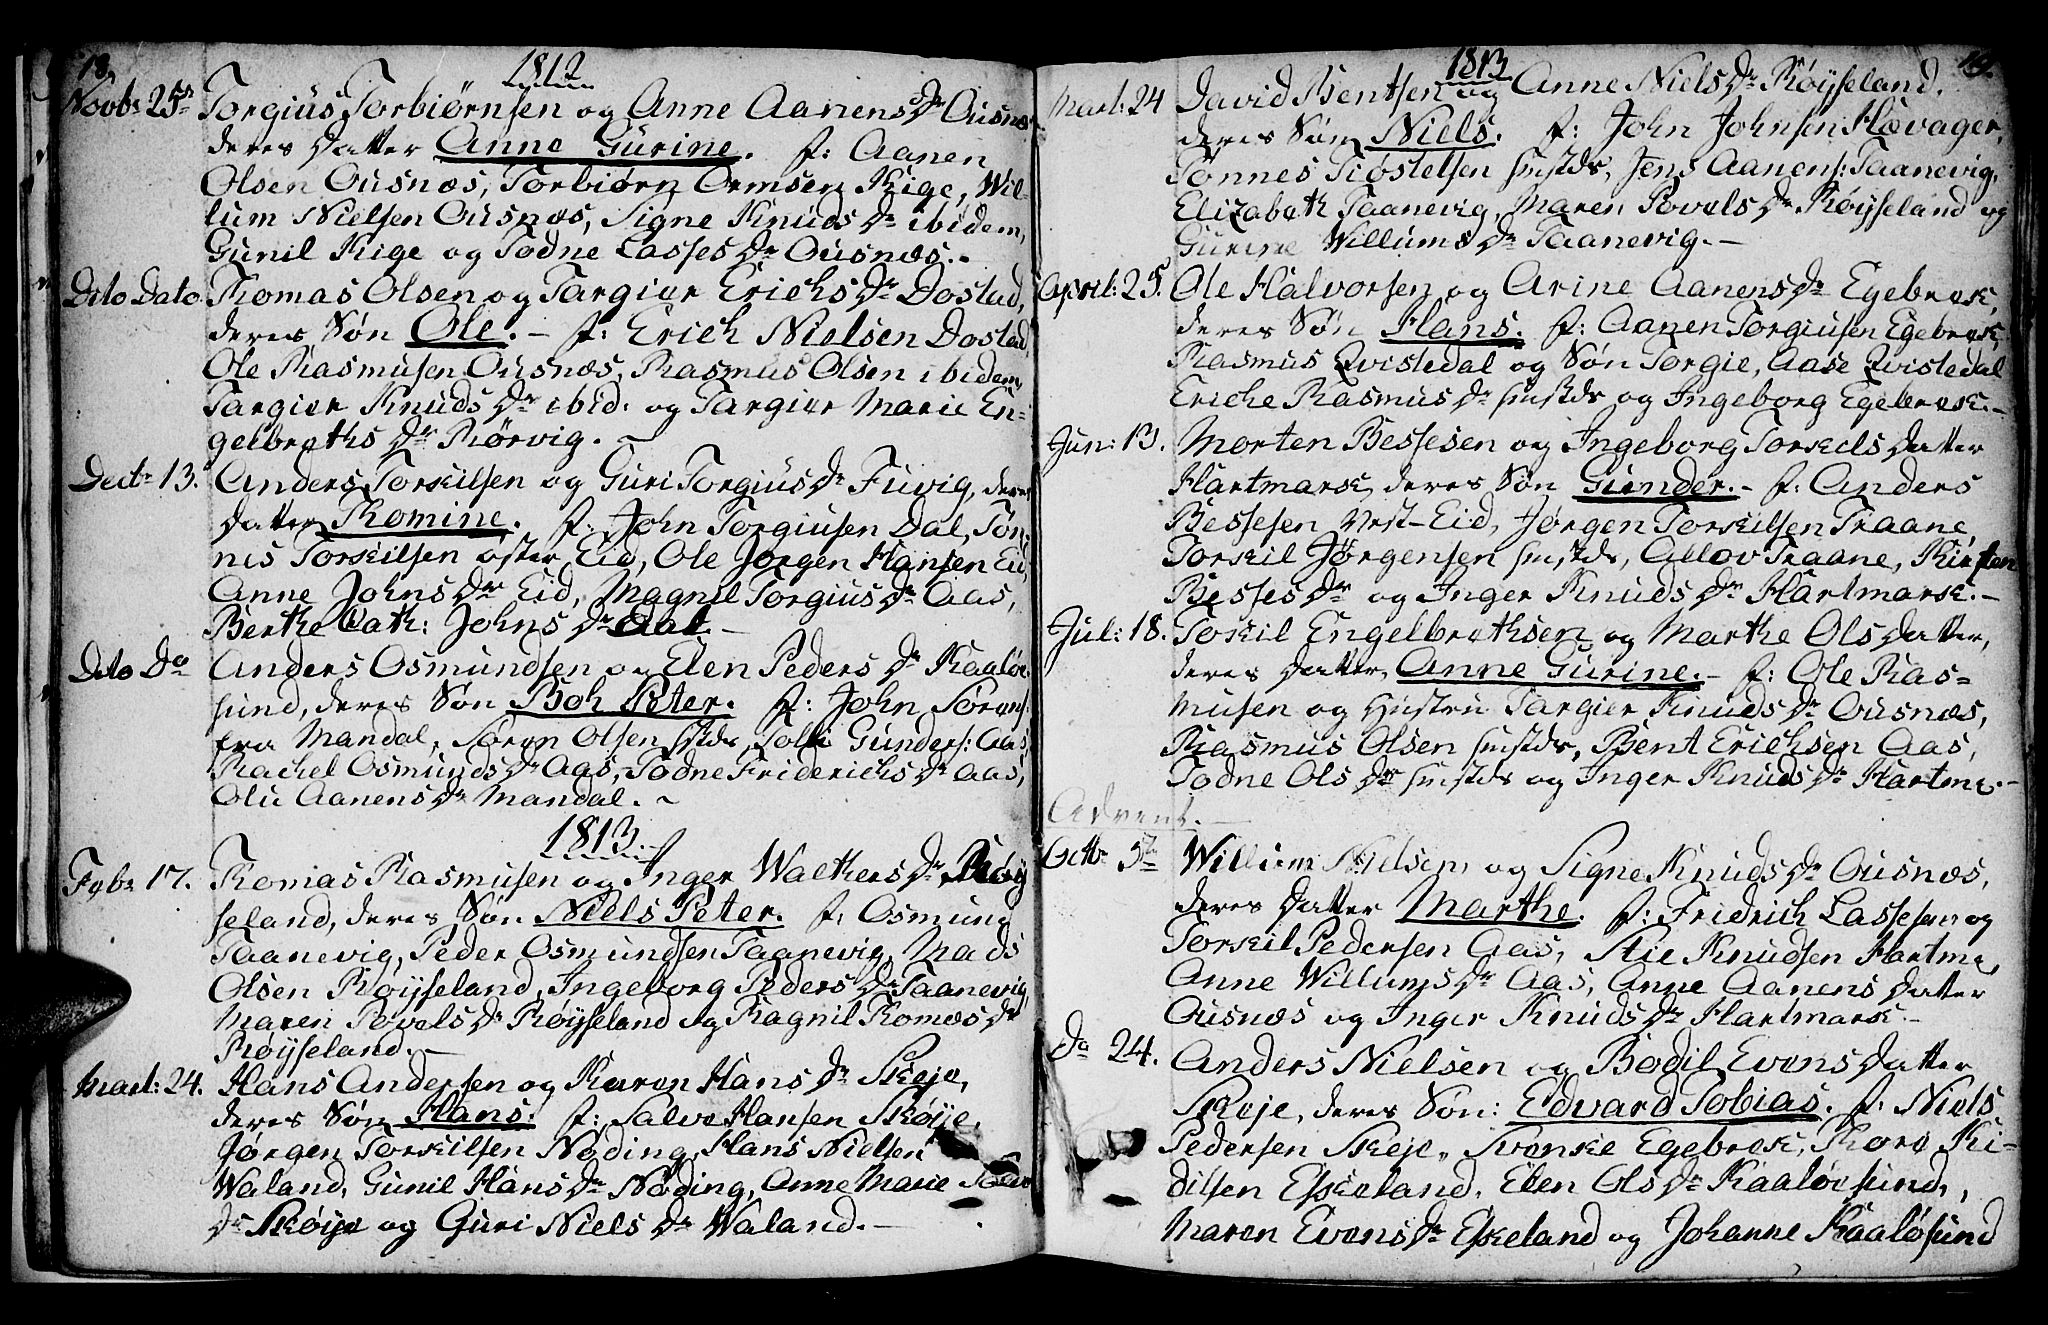 18.
1812
Novbr 25de Torgius Torbiørnsen og Anne Aanens Dr Ousnæs
deres Datter Anne Gurine. f: Aanen
Olsen Ousnæs, Torbiørn Ormsen Kige, Wil-
lum Nielsen Ousnæs, Signe Knuds Dr ibidem,
Gunil Kige og Todne Lasses Dr Ousnæs.-
Dito Dato Thomas Olsen og Targier Erichs Dr Dostad,
deres Søn Ole. - f: Erich Nielsen Dostad,
Ole Rasmusen Ousnæs, Rasmus Olsen ibidem,
Targier Knuds Dr ibid: og Targier Marie En-
gelbreths Dr Rørvig. ~
Dectr 13. Anders Torkilsen og Guri Torgius Dr Fuvig, deres
Datter Thomine. f: John Torgiusen Dal, Tøn-
nis Torkilsen øster Eid, Ole Jørgen Hansen Eid,
Anne Johns Dr Eid, Magnil Torgius Dr Aas,
Berthe Cath: Johns Dr Dal.-
Dito Do Anders Osmundsen og Elen Peders Dr Kaalør-
sund, deres Søn Boh Peter. f: John Sørens:
fra Mandal, Søren Olsen sstds, Gunders: Aas,
Rachel Osmunds Dr Aas, Todne Friderichs Dr Aas,
Olii Aanens Dr Mandal. ~
1813.
Febr 17. Thomas Rasmusen og Inger Walthers Dr Røy
seland, deres Søn Niels Peter. f: Osmund
Taanevig, Peder Osmundsen Taanevig, Mads
Olsen Røysseland, Ingeborg Peders Dr Taanevig,
Maren Povels Dr Røysseland og Ragnil Thomæs Dr
Røysseland.-
Mart: 24. Hans Andersen og Karen Hans Dr Skeje,
deres Søn Hans. f: Salve Hansen Skøije,
Jørgen Torkilsen Nøding, Hans Nielsen
Waland, Gunil Hans Dr Nøding, Anne Marie
Dr Skøije og Guri Niels Dr Waland.-
19.
1813
Mart: 24 David Bentsen og Anne Niels Dr Røysseland.
deres Søn Niels. f: John Johnsen Hovager,
Tønnes Tiøstelsen sstds, Jens Aanens: Taanevig,
Elizabeth Taanevig, Maren Povels Dr Røysseland og
Gurine Willums Dr Taanevig.-
April: 25. Ole Halvorsen og Arine Aanens Dr Egebræk,
deres Søn Hans. f: Aanen Torgiusen Egebræk,
Rasmus Qvistedal og Søn Torgie, Aase Qvistedal
Eriche Rasmus Dr sstds og Ingeborg Egebræk.-
Jun: 13. Morten Bessesen og Ingeborg Torkels Datter
Hartmark, deres Søn Gunder. - f: Anders
Bessesen Vest-Eid, Jørgen Torkilsen Traane,
Torkil Jørgensen sstds, Allov Traane, Kirsten
Besses Dr og Inger Knuds Dr Hartmark.-
Jul: 18. Torkil Engelbrethsen og Marthe Ols Datter,
deres Datter Anne Gurine. - f: Ole Ras-
musen og Hustru Targier Knuds Dr Ousnæs,
Rasmus Olsen sstds, Bent Erichsen Aas,
Todne Ols Dr sstds og Inger Knuds Dr Hartm:-
Advent.-
Octbr 3de Willum Nielsen og Signe Knuds Dr Ousnæs,
deres Datter Marthe. f: Fridrich Lassesen og
Torkil Pedersen Aas, Stie Knudsen Hartm:,
Anne Willums Dr Aas, Anne Aanens Datter
Ousnæs og Inger Knuds Dr Hartmark.-
Do 24. Anders Nielsen og Bodil Evens Datter
Skeje, deres Søn: Edvard Tobias. f: Niels
Pedersen Skeje, Svenke Egebræk, Thore Ki-
dilsen Eskeland, Elen Ols Dr Kaalørsund,
Maren Evens Dr Eskeland og Johanne Kaaløsund